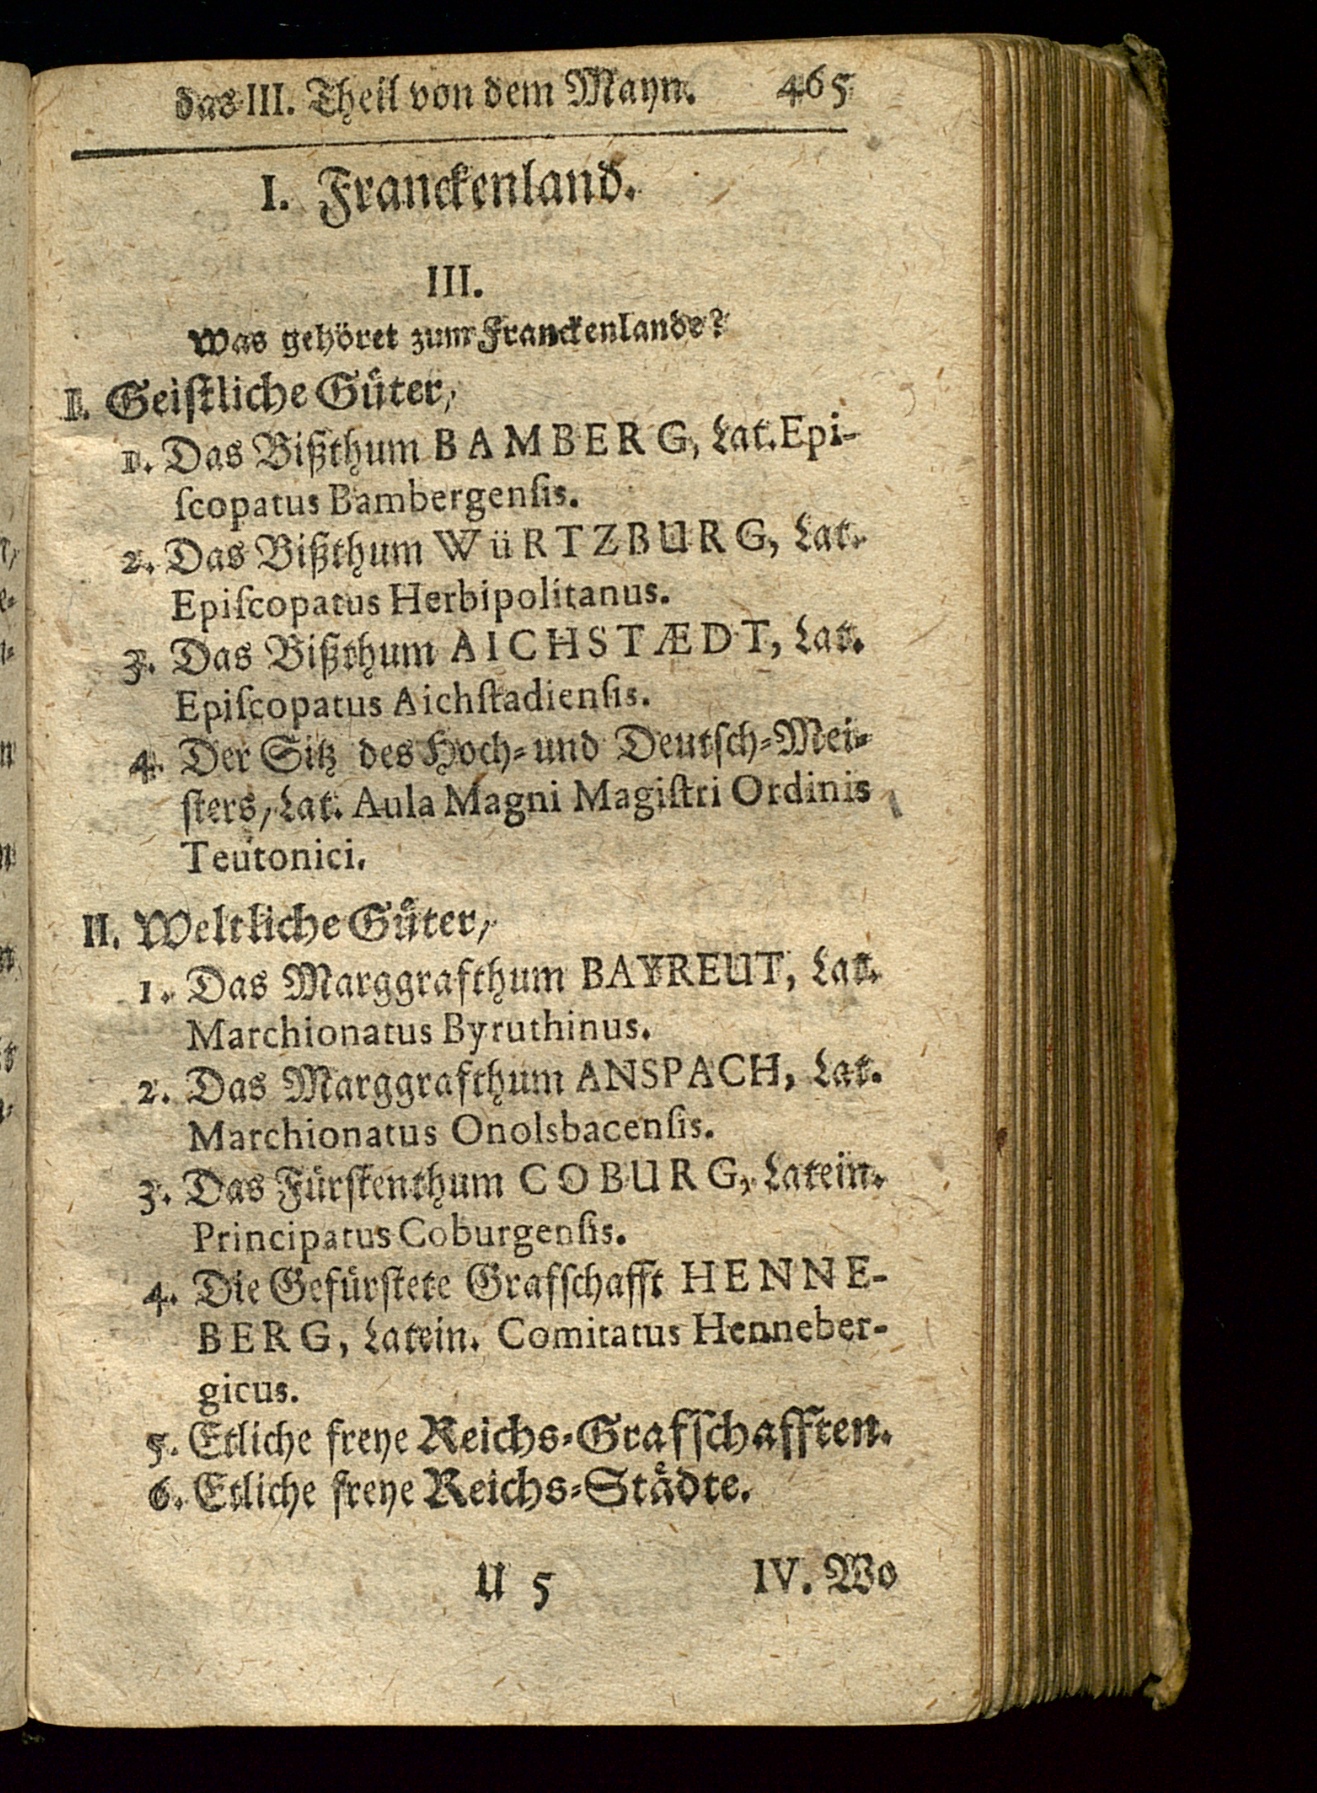 das III. Theil von dem Mayn. 465
I. Franckenland.
III.
Was gehöret zum Franckenlande?
I. Geiſtliche Güter,
1. Das Bißthum BAMBERG, Lat. Epi-
ſcopatus Bambergenſis.
2. Das Bißthum WüRTZBURG, Lat.
Epiſcopatus Herbipolitanus.
3. Das Bißthum AICHSTÆDT, Lat.
Epiſcopatus Aichſtadienſis.
4. Der Sitz des Hoch- und Deutſch-Mei-
ſters, Lat. Aula Magni Magiſtri Ordinis
Teutonici.
II. Weltliche Güter,
1. Das Marggrafthum BAYREUT, Lat.
Marchionatus Byruthinus.
2. Das Marggrafthum ANSPACH, Lat.
Marchionatus Onolsbacenſis.
3. Das Fürſtenthum COBURG, Latein.
Principatus Coburgenſis.
4. Die Gefürſtete Grafſchafft HENNE-
BERG, Latein. Comitatus Henneber-
gicus.
5. Etliche freye Reichs-Grafſchafften.
6. Etliche freye Reichs-Städte.
U 5 IV. Wo